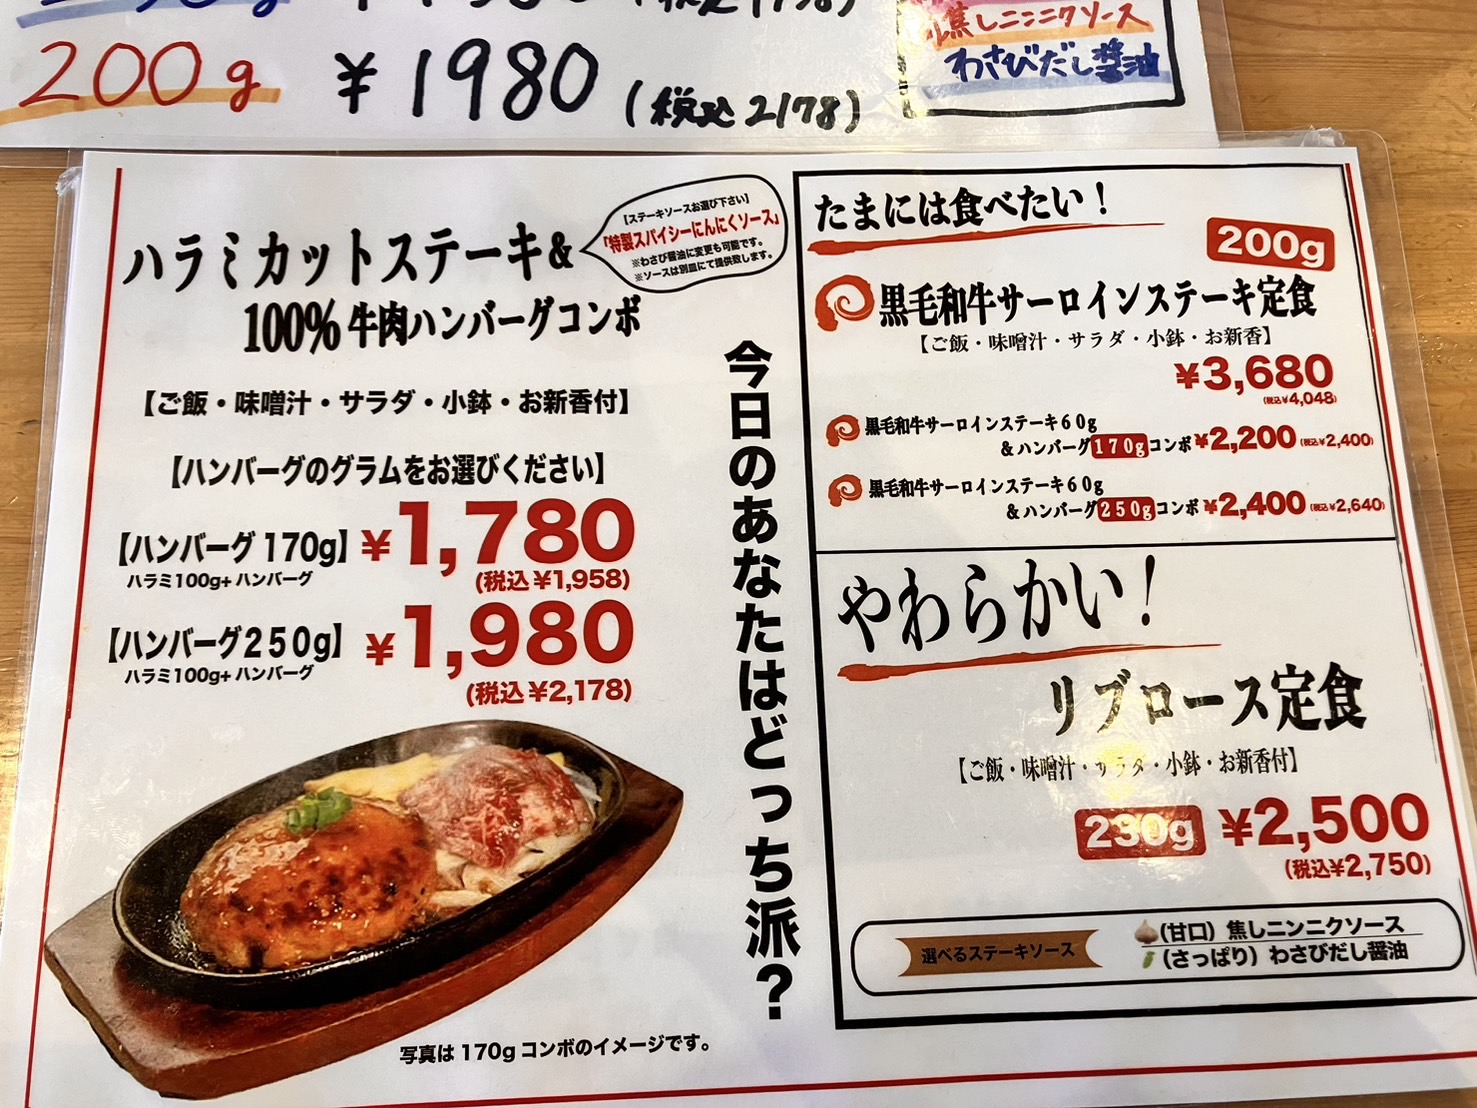 200g ¥1980 (税込2178)
焦しニンニクソース
わさびだし醤油
ハラミカットステーキ&
100%牛肉ハンバーグコンボ
【ステーキソースお選び下さい】
「特製スパイシーにんにくソース」
※わさび醤油に変更も可能です。
※ソースは別皿にて提供致します。
【ご飯・味噌汁・サラダ・小鉢・お新香付】
【ハンバーグのグラムをお選びください】
【ハンバーグ170g】¥1,780
ハラミ100g+ハンバーグ
(税込¥1,958)
【ハンバーグ250g】¥1,980
ハラミ100g+ハンバーグ
(税込¥2,178)
写真は170gコンボのイメージです。
今日のあなたはどっち派?
たまには食べたい!
200g
黒毛和牛サーロインステーキ定食
【ご飯・味噌汁・サラダ・小鉢・お新香】
¥3,680
(税込¥4,048)
黒毛和牛サーロインステーキ60g
&ハンバーグ170gコンボ¥2,200(税込¥2,400)
黒毛和牛サーロインステーキ60g
&ハンバーグ250gコンボ¥2,400(税込¥2,640)
やわらかい!
リブロース定食
【ご飯・味噌汁・サラダ・小鉢・お新香付】
230g ¥2,500
(税込¥2,750)
選べるステーキソース
(甘口)焦しニンニクソース
(さっぱり)わさびだし醤油